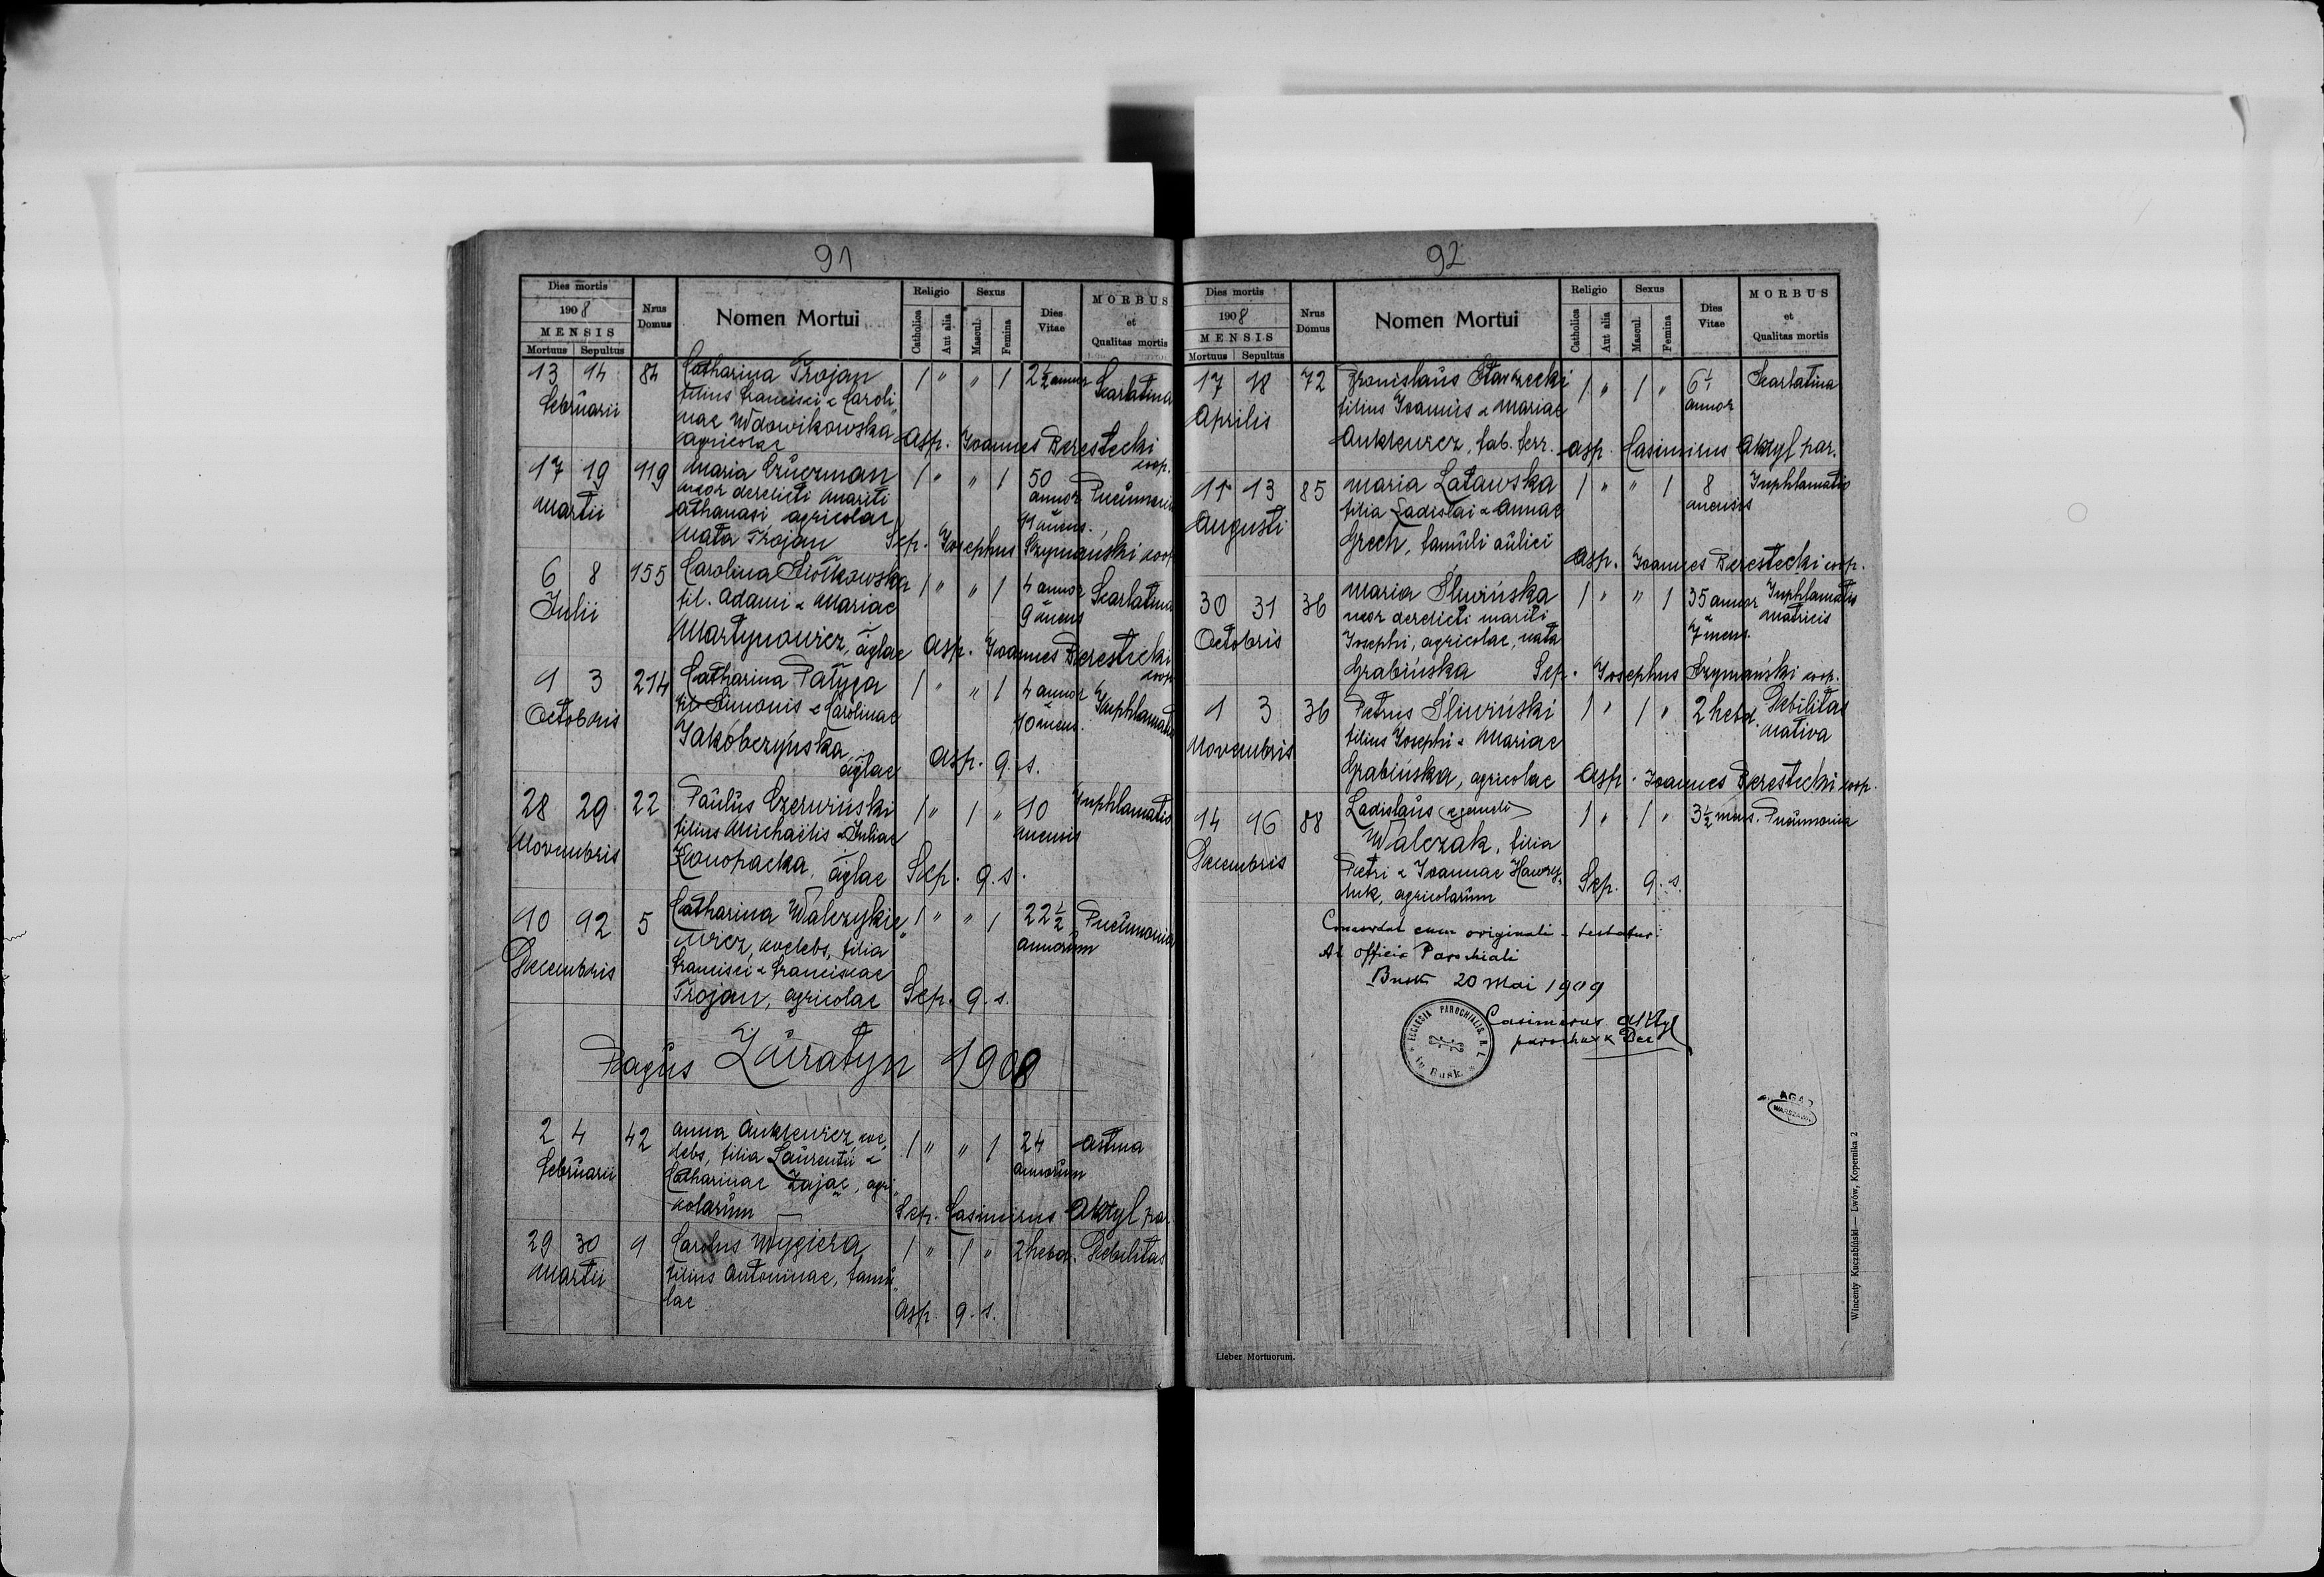 91
Dies mortis
1908
MENSIS
Mortuus Sepultus
Nrus Domus
Nomen Mortui
Religio
Catholica
Aut alia
Sexus
Mascul.
Femina
Dies Vitae
MORBUS
et
Qualitas mortis
13 14 84 Catharina Trojan 1 " " 1 2½ annor Scarlatina
Februarii filius Francisci & Caroli„
nae Wdowikowska
agricolae Asp. Joannes Berestecki
coop.
17 19 119 Maria Czuczman 1 " " 1 50 Pneumonia
Martii uxor derelicti mariti annor
Athanasi agricolae 11 mens.
nata Trojan Sep. Josephus Szymański coop
6 8 155 Carolina Siotkowska 1 " " 1 4 annor Scarlatina
Julii fil. Adami & Mariae 9 mens
Martynowicz, aglae Asp. Joannes Berestecki
coop
1 3 214 Catharina Patyga 1 " " 1 4 annor Inphlamatio
Octobris fil. Simonis & Carolinae 10 mens.
Jakóbczyńska
aglae Asp. q. s.
28 29 22 Paulus Czerwiński 1 " 1 " 10 Inphlamatio
Novembris filius Michaëlis & Juliae mensis
Konopacka, aglae Sep. q. s.
10 12 5 Catharina Walczykie„ 1 " " 1 22½ Pneumonia
Decembris wicz, coelebs, filia annorum
Francisci & Franciscae
Trojan, agricolae Sep. q. s.
Pagus Żuratyn 1908
2 4 42 Anna Ankiewicz coe„ 1 " " 1 24 Astma
Februarii lebs, filia Laurentii & annorum
Catharinae Zając, agri„
colarum Sep. Casimirus Aktyl par
29 30 9 Carolus Wygiera 1 " 1 " 2 hebd. Debilitas
Martii filius Antoninae, famu„
lae Asp. q. s.
92
Dies mortis
1908
MENSIS
Mortuus Sepultus
Nrus Domus
Nomen Mortui
Religio
Catholica
Aut alia
Sexus
Mascul.
Femina
Dies Vitae
MORBUS
et
Qualitas mortis
17 18 72 Bronislaus Stawzecki 1 " 1 " Scarlatina
Aprilis filius Joannis & Mariae annor
Ankiewicz, fab. ferr. Asp. Casimirus Aktyl par.
11 13 85 Maria Latawska 1 " " 1 8 Inphlamatio
Augusti filia Ladislai & Annae mensis
Grech, famuli aulici
Asp. Joannes Berestecki coop.
30 31 36 Maria Śliwińska 1 " " 1 35 annor Inphlamatio
Octobris uxor derelicti mariti 7 mens. matricis
Josephi, agricolae, nata
Grabińska Sep. Josephus Szymański coop.
1 3 36 Petrus Śliwiński 1 " 1 " 2 hebd. Debilitas
Novembris filius Josephi & Mariae nativa
Grabińska, agricolae Asp. Joannes Berestecki coop.
14 16 88 Ladislaus (gemelli) 1 " 1 " 3½ mens. Pneumonia
Decembris Walczak, filia
Petri & Joannae Hawry„
luk, agricolarum Sep. q. s.
Concordat cum originali testatur:
Ab officio Parochiali
Busk 20 Mai 1909
Casimirus Aktyl
parochus & Dec
ECCLESIA PAROCHIALIS R. L.
in Busk
AGAD
WARSZAWA
Lieber Mortuorum.
Wincenty Kuczabiński — Lwów, Kopernika 2